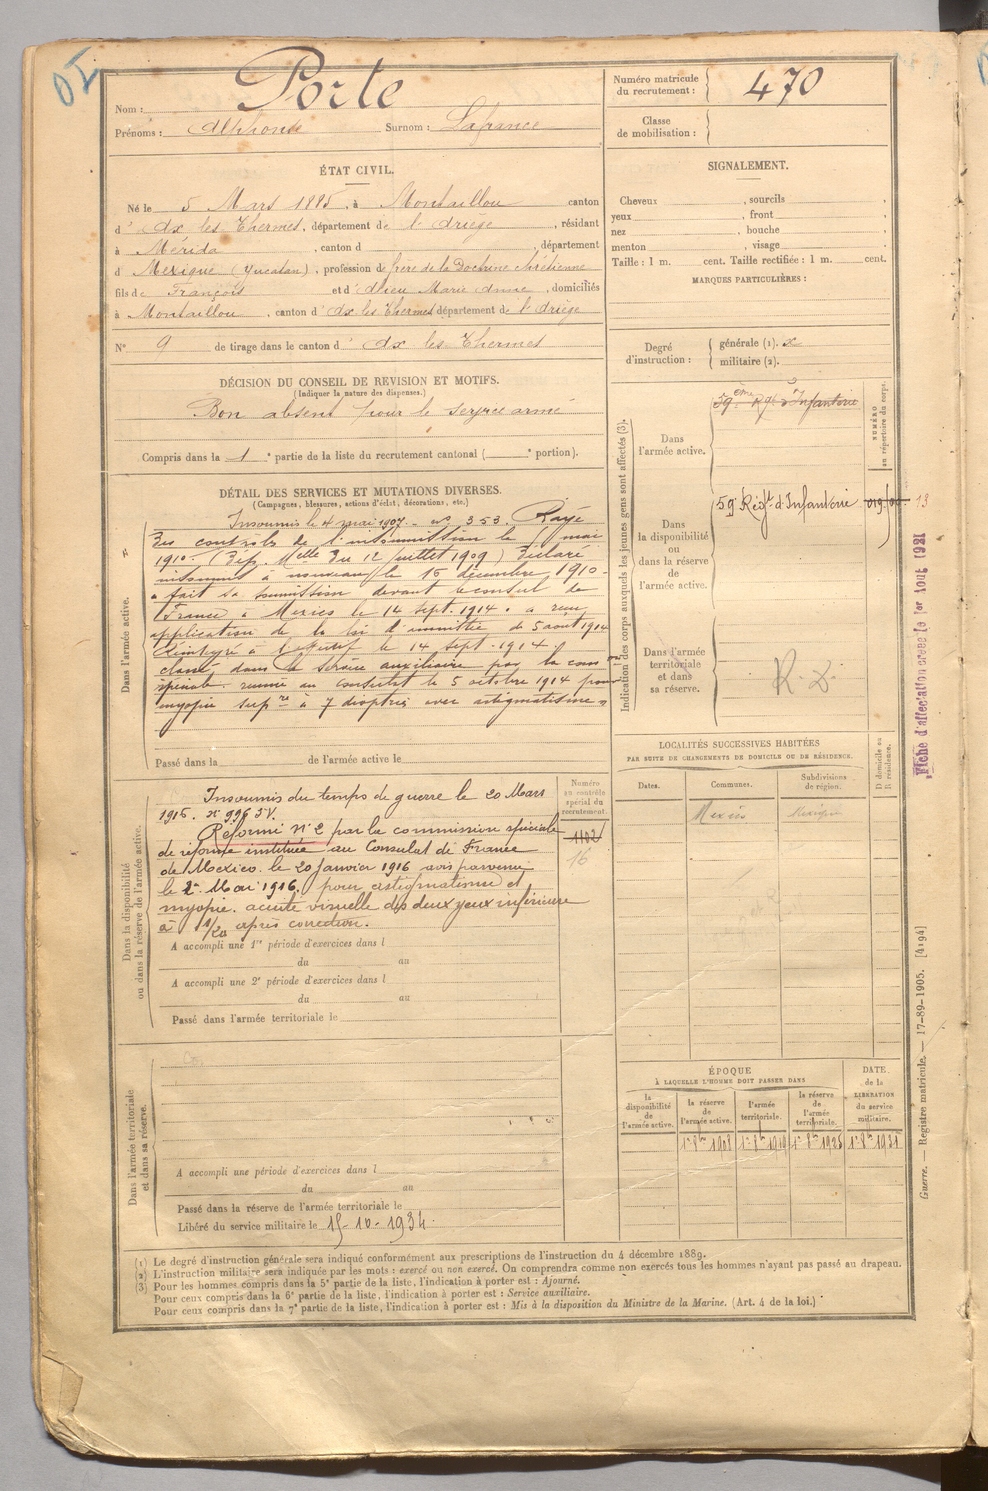 DI
Nom : Porte
Prénoms : Alphonse Surnom : Lafrance
Numéro matricule du recrutement : 470
Classe de mobilisation :
ÉTAT CIVIL.
Né le 5 Mars 1885, à Montaillou canton
d' Ax les Thermes, département de l'Ariège, résidant
à Mérida, canton d , département
d Mexique (Yucatan), profession de frère de la Doctrine chrétienne
fils de François et d' Marie Anne, domiciliés
à Montaillou, canton d' Ax les Thermes département de l'Ariège
N° 9 de tirage dans le canton d' Ax les Thermes
DÉCISION DU CONSEIL DE REVISION ET MOTIFS.
(Indiquer la nature des dispenses.)
Bon absent pour le service armé
Compris dans la 1e partie de la liste du recrutement cantonal ( e portion).
DÉTAIL DES SERVICES ET MUTATIONS DIVERSES.
(Campagnes, blessures, actions d'éclat, décorations, etc.)
Dans l'armée active.
Insoumis le 4 mai 1907. n° 353. Rayé
des contrôles de l'insoumission le mai
1910. (Dép. Melle du 12 juillet 1909) Déclaré
insoumis à nouveau le 15 décembre 1910.
a fait sa soumission devant le consul de
France à Mexico le 14 sept. 1914.
application de la loi d'amnistie de 5 août 1914
Réintégré à l'effectif le 14 sept. 1914.
classé dans le service auxiliaire par la comon
spéciale réunie au consulat le 5 octobre 1914 pour
myopie supre à 7 dioptries avec astigmatisme "
Passé dans la de l'armée active le
Dans la disponibilité ou dans la réserve de l'armée active.
Numéro au contrôle spécial du recrutement.
1102
16
Insoumis du temps de guerre le 20 Mars
1915. N° 996 SV.
Réformé N° 2 par la commission spéciale
de réforme instituée au Consulat de France
de Mexico. le 20 janvier 1916 avis parvenu
le 2 Mai 1916, pour astigmatisme et
myopie. acuité visuelle des deux yeux inférieure
à 1/20 après correction.
A accompli une 1re période d'exercices dans l
du au
A accompli une 2e période d'exercices dans l
du au
Passé dans l'armée territoriale le
Dans l'armée territoriale et dans sa réserve.
A accompli une période d'exercices dans l
du au
Passé dans la réserve de l'armée territoriale le
Libéré du service militaire le 15-10-1934.
SIGNALEMENT.
Cheveux , sourcils ,
yeux , front ,
nez , bouche ,
menton , visage
Taille : 1 m. cent. Taille rectifiée : 1 m. cent.
MARQUES PARTICULIÈRES :
Degré d'instruction :
générale (1). x
militaire (2).
Indication des corps auxquels les jeunes gens sont affectés (3).
NUMÉRO au répertoire du corps.
Dans l'armée active.
59ème Rgt d'Infanterie
Dans la disponibilité ou dans la réserve de l'armée active.
59 Régt d'Infanterie
13
Dans l'armée territoriale et dans sa réserve.
R. D.
LOCALITÉS SUCCESSIVES HABITÉES
PAR SUITE DE CHANGEMENTS DE DOMICILE OU DE RÉSIDENCE.
Dates.
Communes.
Subdivisions de région.
D domicile ou R résidence.
Mexico Mexique
ÉPOQUE
À LAQUELLE L'HOMME DOIT PASSER DANS
la disponibilité de l'armée active.
la réserve de l'armée active.
l'armée territoriale.
la réserve de l'armée territoriale.
DATE de la LIBÉRATION du service militaire.
1er 8bre 1908 1er 8bre 1919 1er 8bre 1925 1er 8bre 1931
Fiche d'affectation créée le 1er Août 1921
Guerre. — Registre matricule. — 17-89-1905. [4194]
(1) Le degré d'instruction générale sera indiqué conformément aux prescriptions de l'instruction du 4 décembre 1889.
(2) L'instruction militaire sera indiquée par les mots : exercé ou non exercé. On comprendra comme non exercés tous les hommes n'ayant pas passé au drapeau.
(3) Pour les hommes compris dans la 5e partie de la liste, l'indication à porter est : Ajourné.
Pour ceux compris dans la 6e partie de la liste, l'indication à porter est : Service auxiliaire.
Pour ceux compris dans la 7e partie de la liste, l'indication à porter est : Mis à la disposition du Ministre de la Marine. (Art. 4 de la loi.)